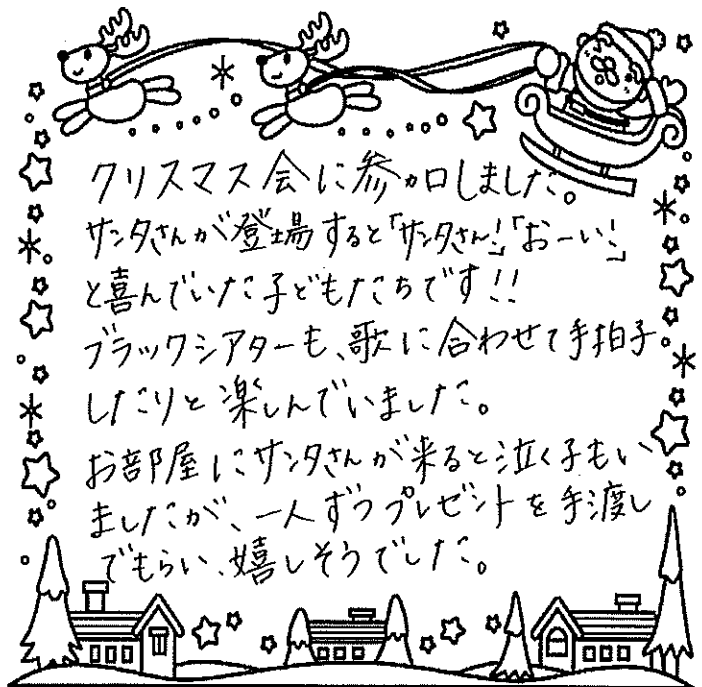 クリスマス会に参加しました。
サンタさんが登場すると「サンタさん!」「おーい!」
と喜んでいた子どもたちです!!
ブラックシアターも、歌に合わせて手拍子
したりと楽しんでいました。
お部屋にサンタさんが来ると泣く子もい
ましたが、一人ずつプレゼントを手渡し
でもらい、嬉しそうでした。